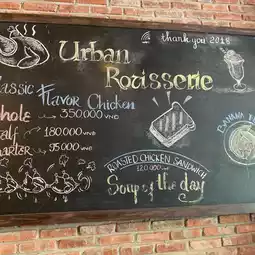 thank you 2018
Urban
Rotisserie
Classic Flavor Chicken
Whole 350.000 VND
Half 180.000 VND
Quarter 95.000 VND
ROASTED CHICKEN SANDWICH
120.000 VND
Soup of the day
BANANA